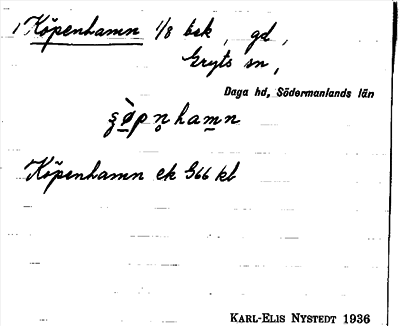 1 Köpenhamn 1/8 bsk, gd,
Gryts sn,
Daga hd, Södermanlands län
Köpenhamn ek 966 kl
KARL-ELIS NYSTEDT 1936